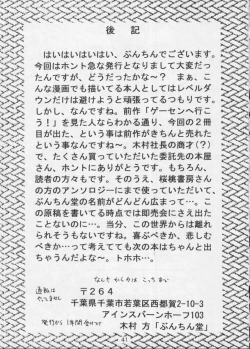 後記
はいはいはいはい、ぶんちんでございます。
今回はホント急な発行となりまして大変だっ
たんですが、どうだったかな〜？　まぁ、こ
んな漫画でも描いてる本人としてはレベルダ
ウンだけは避けようと頑張ってるつもりです。
しかし、なんですね。前作「ゲーセンへ行こ
う！」を見た人ならわかる通り、今回の２冊
目が出た、という事は前作がきちんと売れた
という事なんですね〜。木村社長の商才(？)
で、たくさん買っていただいた委託先の本屋
さん、ホントにありがとうです。もちろん、
読者の方々もです。そのうえ、桜桃書房さん
の方のアンソロジーにまで使っていただいて、
ぶんちん堂の名前がどんどん広まって…。こ
の原稿を書いてる時点では即売会にさえ出た
ことないのに…。当分、この世界からは離れ
られそうもないですね。喜ぶべきか、悲しむ
べきか…って考えてても次の本はちゃんと出
ちゃうんだけどね…。トホホ…。
通販は
やってません
〒２６４
千葉県千葉市若葉区西都賀2-10-3
アインスバーンホーフ103
発行から1年間有効です
木村 方「ぶんちん堂」
41